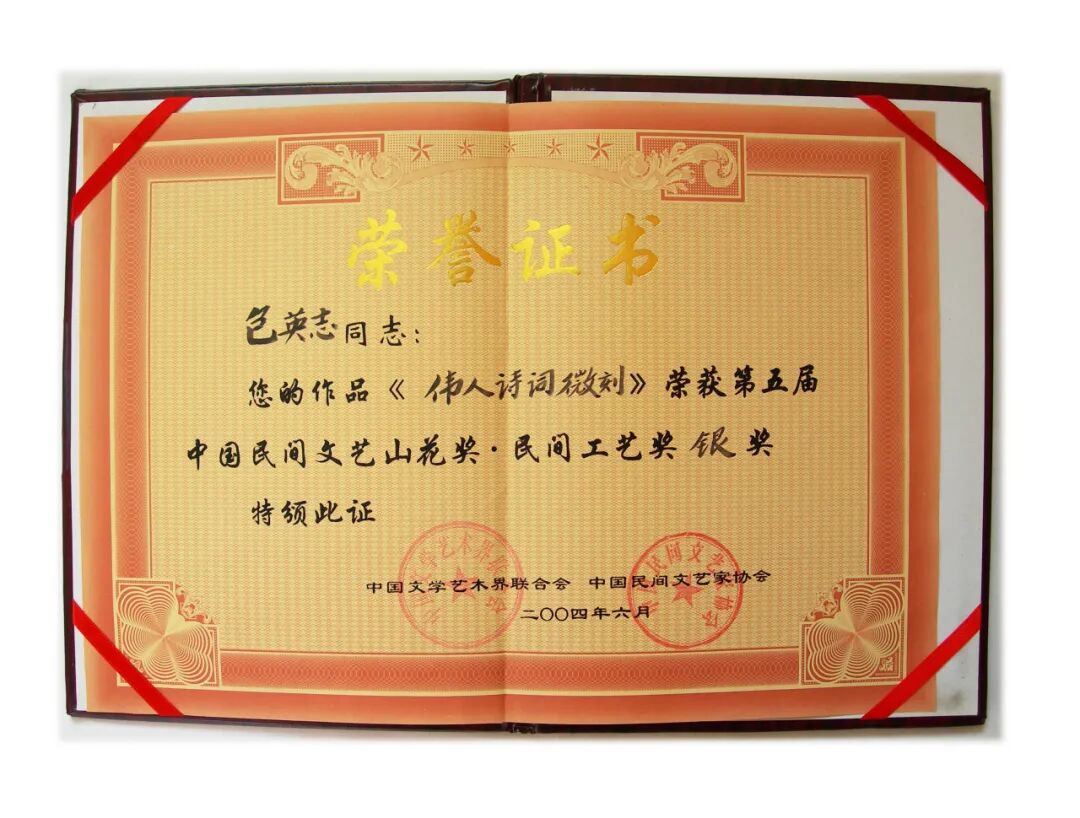 荣誉证书
包英志同志：
您的作品《伟人诗词微刻》荣获第五届
中国民间文艺山花奖·民间工艺奖银奖
特颁此证
中国文学艺术界联合会 中国民间文艺家协会
二〇〇四年六月